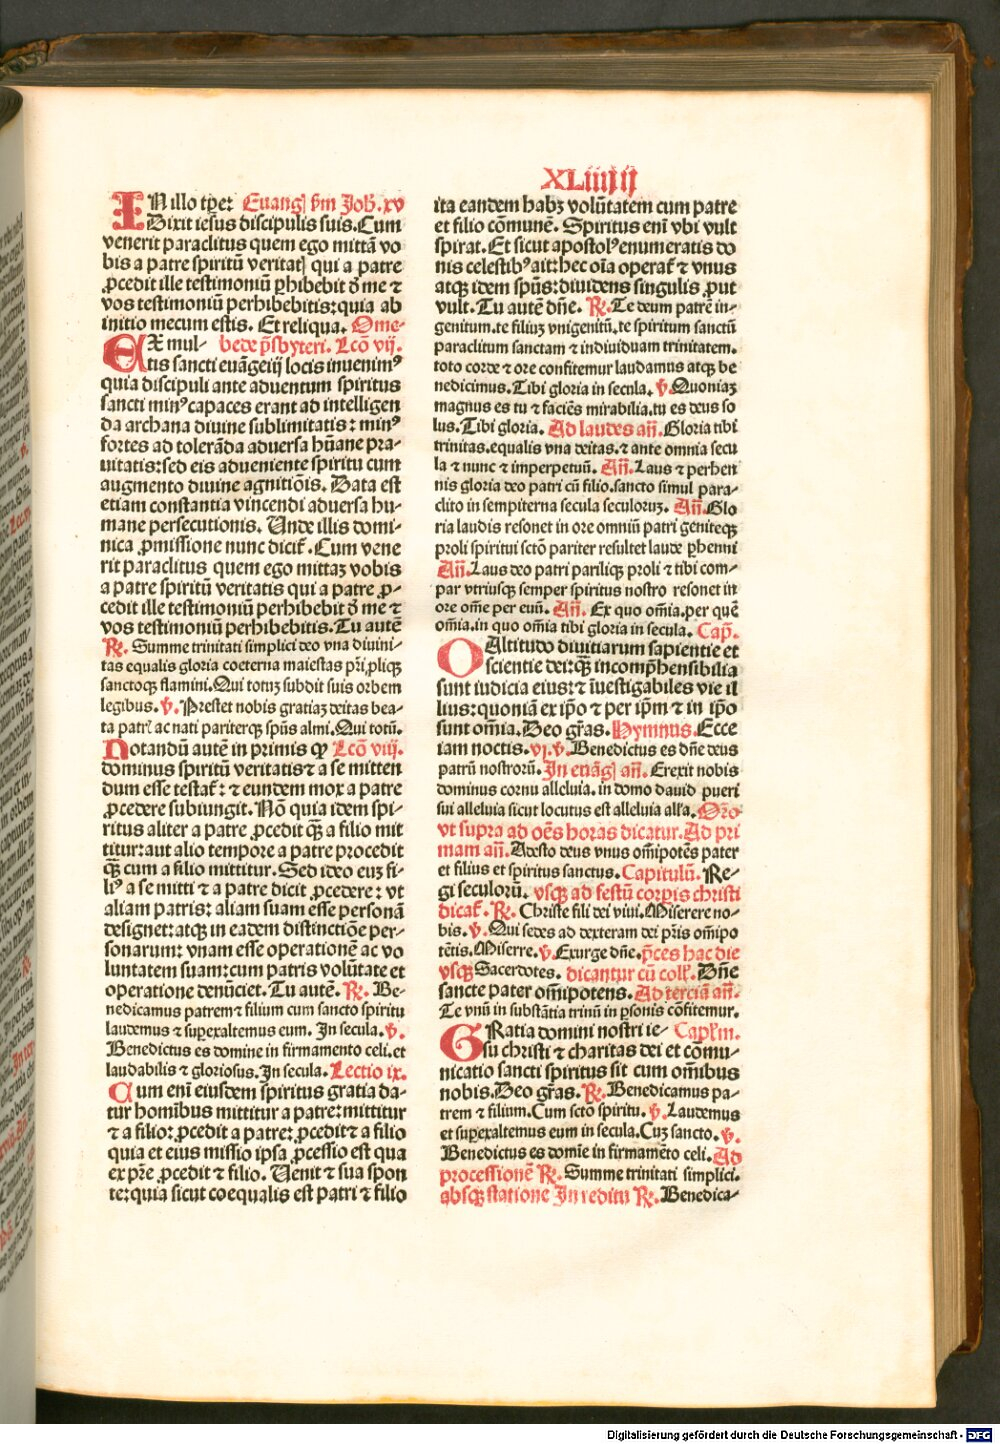 XLiiiij
IN illo tp̄er Euangʒ ſm̄ Joh̄.xv
Dixit ieſus diſcipulis ſuis. Cum
venerit paraclitus quem ego mittā vo
bis a patre ſpiritū veritatʒ qui a patre
ꝓcedit ille teſtimoniū ꝑhibebit ð me ⁊
vos teſtimoniū perhibebitis: quia ab
initio mecum eſtis. Et reliqua. Ome-
EX mul- bede p̄ſbyteri. Lcō vij.
tis ſancti euāgeiij locis inuenimꝰ
quia diſcipuli ante aduentum ſpiritus
ſancti minꝰ capaces erant ad intelligen
da archana diuine ſublimitatis: minꝰ
fortes ad tolerāda aduerſa hūane pra-
uitatis: ſed eis adueniente ſpiritu cum
augmento diuine agnitiōis. Data eſt
etiam conſtantia vincendi aduerſa hu-
mane perſecutionis. Unde illis domi-
nica ꝓmiſſione nunc dicit̄. Cum vene
rit paraclitus quem ego mittaʒ vobis
a patre ſpiritū veritatis qui a patre ꝓ-
cedit ille teſtimoniū perhibebit ð me ⁊
vos teſtimoniū perhibebitis. Tu autē
R̄. Summe trinitati ſimplici deo vna diuini-
tas equalis gloria coeterna maieſtas pr̄i ꝓliqʒ
sanctoqʒ flamini. Qui totuʒ ſubdit ſuis orbem
legibus. v̄. Preſtet nobis gratiaʒ deitas bea-
ta patrʒ ac nati pariterqʒ ſpūs almi. Qui totū.
Notandū autē in primis ꝙ Lcō viij.
dominus ſpiritū veritatis ⁊ a ſe mitten
dum eſſe teſtat̄: ⁊ eundem mox a patre
ꝓcedere ſubiungit. Nō quia idem ſpi-
ritus aliter a patre ꝓcedit qʒ̄ a filio mit
titur: aut alio tempore a patre procedit
qʒ̄ cum a filio mittitur. Sed ideo euʒ fi-
liꝰ a ſe mitti ⁊ a patre dicit ꝓcedere: vt
aliam patris: aliam ſuam eſſe perſonā
deſignet: atqʒ in eadem diſtinctiōe per-
ſonarum: vnam eſſe operationē ac vo
luntatem ſuam: cum patris volūtate et
operatione denūciet. Tu autē. R̄. Be-
nedicamus patrem ⁊ filium cum ſancto ſpiritu
laudemus ⁊ ſuꝑexaltemus eum. In ſecula. v̄.
Benedictus es domine in firmamento celi. et
laudabilis ⁊ glorioſus. In ſecula. Lectio ix.
Cum enī eiuſdem ſpiritus gratia da-
tur homībus mittitur a patre: mittitur
⁊ a filio: ꝓcedit a patre: ꝓcedit ⁊ a filio
quia et eius miſſio ipſa ꝓceſſio eſt qua
ex pr̄e ꝓcedit ⁊ filio. Uenit ⁊ ſua ſpon
te: quia ſicut coequalis eſt patri ⁊ filio
ita eandem habʒ volūtatem cum patre
et filio cōmunē. Spiritus enī vbi vult
ſpirat. Et ſicut apoſtolꝰ enumeratis do
nis celeſtibꝰ ait: hec oīa operat̄ ⁊ vnus
atqʒ idem ſpūs: diuidens ſingulis ꝓut
vult. Tu autē dn̄e. R̄. Te deum patrē in-
genitum. te filiuʒ vnigenitū. te ſpiritum ſanctū
paraclitum ſanctam ⁊ indiuiduam trinitatem.
toto corde ⁊ ore confitemur laudamus atqʒ be
nedicimus. Tibi gloria in ſecula. v̄. Quoniaʒ
magnus es tu ⁊ faciēs mirabilia. tu es deus ſo
lus. Tibi gloria. Ad laudes an̄. Gloria tibi
trinitas. equalis vna deitas. ⁊ ante omnia ſecu
la ⁊ nunc ⁊ imperpetuū. An̄. Laus ⁊ perhen
nis gloria deo patri cū filio. ſancto ſimul para-
clito in ſempiterna ſecula ſeculoruʒ. An̄. Glo
ria laudis reſonet in ore omniū patri geniteqʒ
proli ſpiritui ſctō pariter reſultet laude ꝑhenni
An̄. Laus deo patri pariliqʒ proli ⁊ tibi com-
par vtriuſqʒ ſemper ſpiritus noſtro reſonet in
ore om̄e per euū. An̄. Ex quo om̄ia. per quē
om̄ia. in quo om̄ia tibi gloria in ſecula. Cap̄.
O Altitudo diuitiarum ſapientie et
ſcientie dei: qʒ̄ incomp̄henſibilia
ſunt iudicia eius: ⁊ īueſtigabiles vie il
lius: quoniā ex ip̄o ⁊ per ip̄m ⁊ in ip̄o
ſunt om̄ia. Deo gr̄as. Hymnus. Ecce
iam noctis. vj. v̄. Benedictus es dn̄e deus
patrū noſtrorū. In euāgʒ an̄. Erexit nobis
dominus cornu alleluia. in domo dauid pueri
ſui alleluia ſicut locutus eſt alleluia all̄a. Orō
vt ſupra ad oēs horas dicatur. Ad pri
mam an̄. Adeſto deus vnus om̄ipotēs pater
et filius et ſpiritus ſanctus. Capitulū. Re-
gi ſeculorū. vſqʒ ad feſtū corꝑis chriſti
dicat̄. R̄. Chriſte fili dei viui. Miſerere no-
bis. v̄. Qui ſedes ad dexteram dei pr̄is om̄ipo
tētis. Miſerre. v̄. Exurge dn̄e. p̄ces hac die
vſqʒ Sacerdotes. dicantur cū coll̄. Dn̄e
ſancte pater om̄ipotens. Ad terciā an̄.
Te vnū in ſubſtātia trinū in ꝑſonis cōfitemur.
GRatia domini noſtri ie- Capl̄m.
ſu chriſti ⁊ charitas dei et cōmu-
nicatio ſancti ſpiritus ſit cum om̄ibus
nobis. Deo gr̄as. R̄. Benedicamus pa-
trem ⁊ filium. Cum ſctō ſpiritu. v̄. Laudemus
et ſuꝑexaltemus eum in ſecula. Cuʒ ſancto. v̄.
Benedictus es domīe in firmamēto celi. Ad
proceſſionē R̄. Summe trinitati ſimplici.
abſqʒ ſtatione In reditu R̄. Benedica-
Digitalisierung gefördert durch die Deutsche Forschungsgemeinschaft - DFG